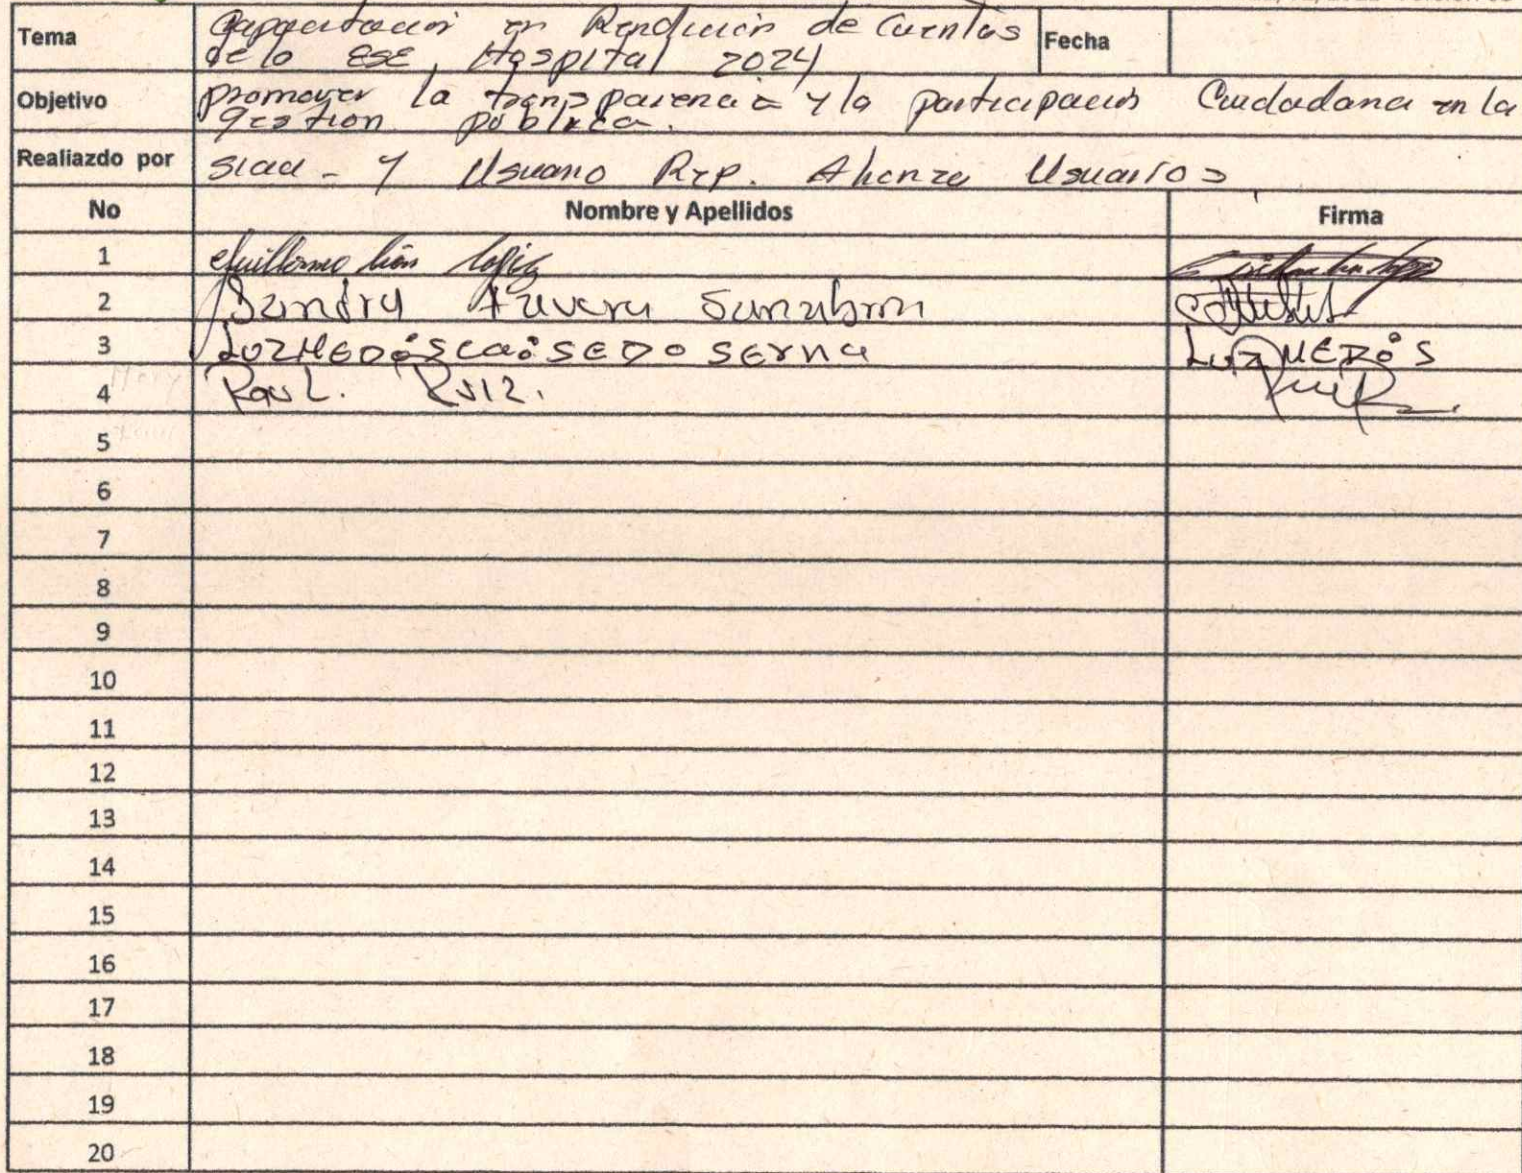 Tema
Capacitación en Rendición de Cuentas
de la ESE Hospital 2024
Fecha
Objetivo
promover la transparencia y la participación Ciudadana en la
gestion pública.
Realiazdo por
siau - y Usuario Rep. Alianza Usuarios
No Nombre y Apellidos Firma
1 Guillermo león lopez
2 Sandra Tavera Sanabria
3 LUZ MEDÓS CAÓSEDO SERNA LUZ MERÓS
4 Raul. Ruiz.
5
6
7
8
9
10
11
12
13
14
15
16
17
18
19
20